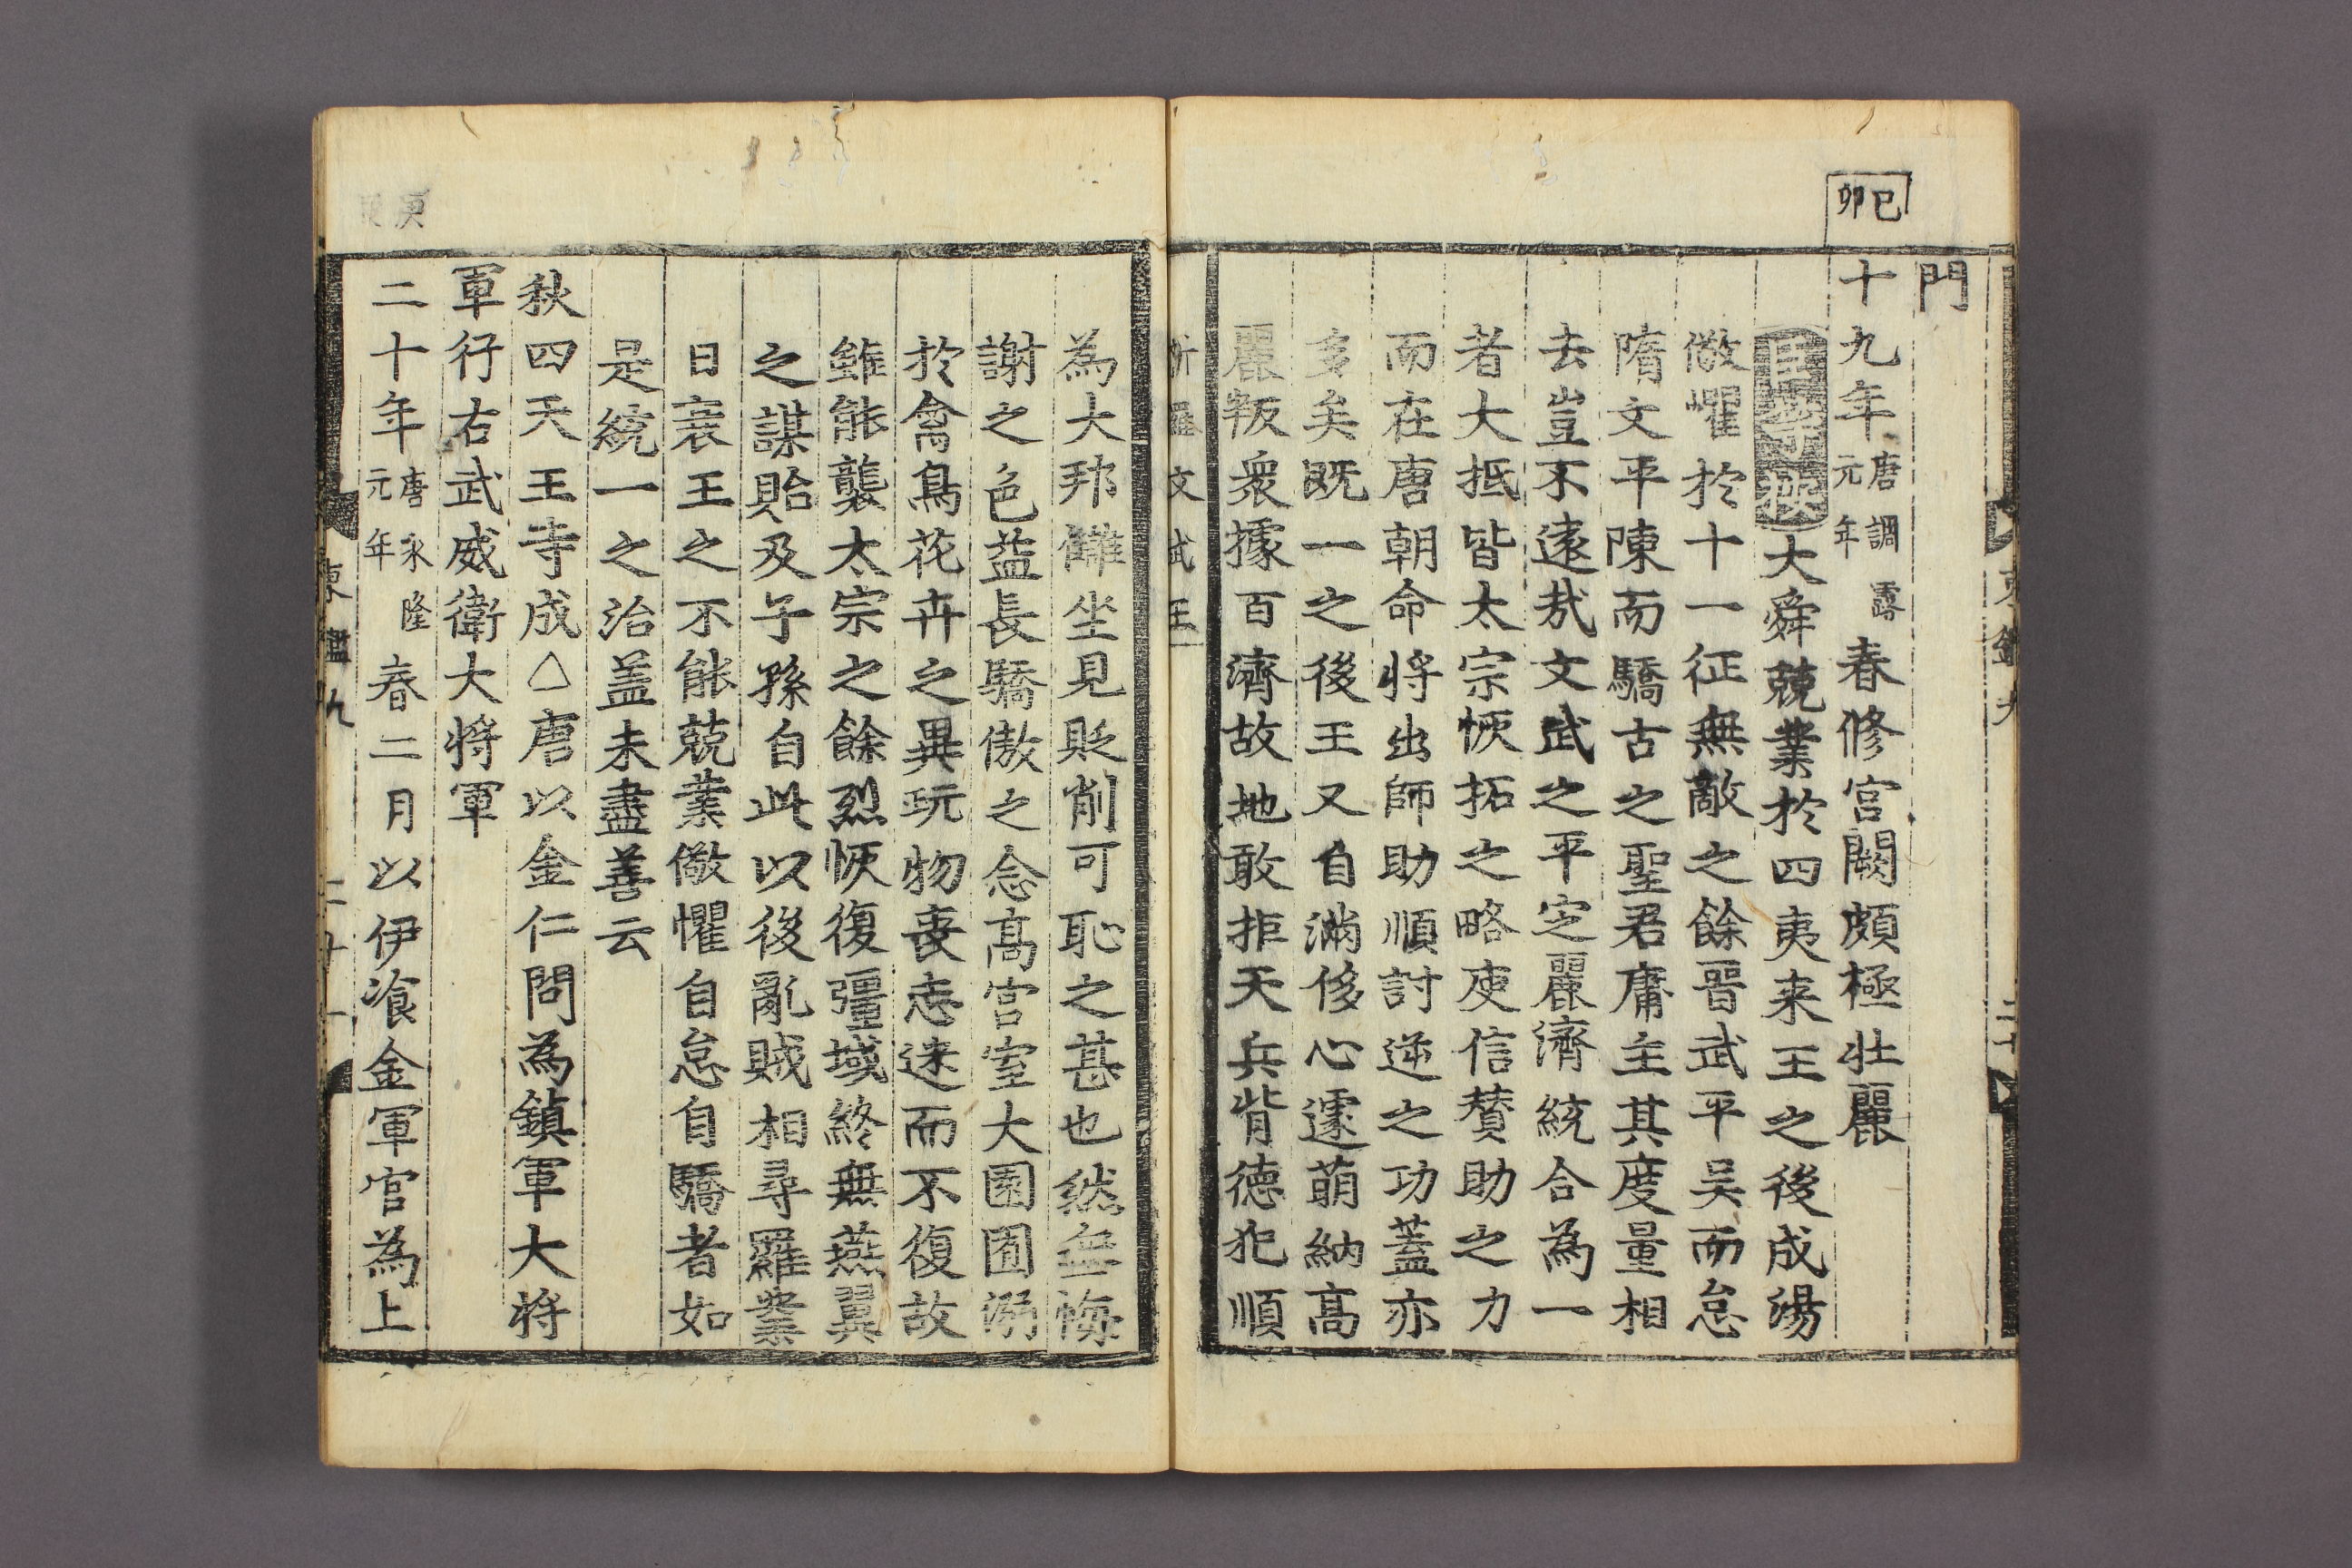 己卯
門
十九年唐調露元年春修宮闕頗極壯麗
臣等按大舜兢業於四夷来王之後成湯
儆懼於十一征無敵之餘晉武平吴而怠
隋文平陳而驕古之聖君庸主其度量相
去豈不遠㢤文武之平定麗濟統合為一
者大抵皆太宗恢拓之略庾信賛助之力
而在唐朝命將出師助順討逆之功蓋亦
多矣既一之後王又自滿侈心遽萌納高
麗叛衆據百濟故地敢拒天兵背德犯順
新羅文武王
為大邦讎坐見貶削可恥之甚也然無悔
謝之色益長驕傲之念高宮室大園囿溺
於禽鳥花卉之異玩物喪志迷而不復故
雖能襲太宗之餘烈恢復彊域終無燕翼
之謀貽及子孫自此以後亂賊相尋羅業
日衰王之不能兢業儆懼自怠自驕者如
是統一之治盖未盡善云
秋四天王寺成△唐以金仁問為鎮軍大將
軍行右武威衛大將軍
二十年唐永隆元年春二月以伊飡金軍官為上
東鑑九 二十一